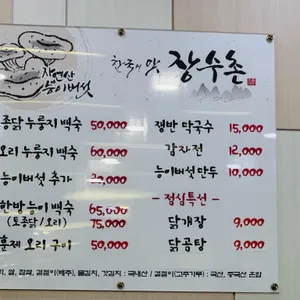 자연산
능이버섯
한국의 맛 장수촌
종닭 누룽지 백숙 50,000
오리 누룽지 백숙 60,000
능이버섯 추가 20,000
한방능이 백숙 65,000
(토종닭/오리) 75,000
훈제 오리구이 50,000
쟁반 막국수 15,000
감자전 12,000
능이버섯 만두 10,000
- 점심특선 -
닭개장 9,000
닭곰탕 9,000
쌀, 찹쌀, 겉절이(배추), 물김치, 갓김치 : 국내산 / 겉절이(고추가루) : 국산, 중국산 혼합